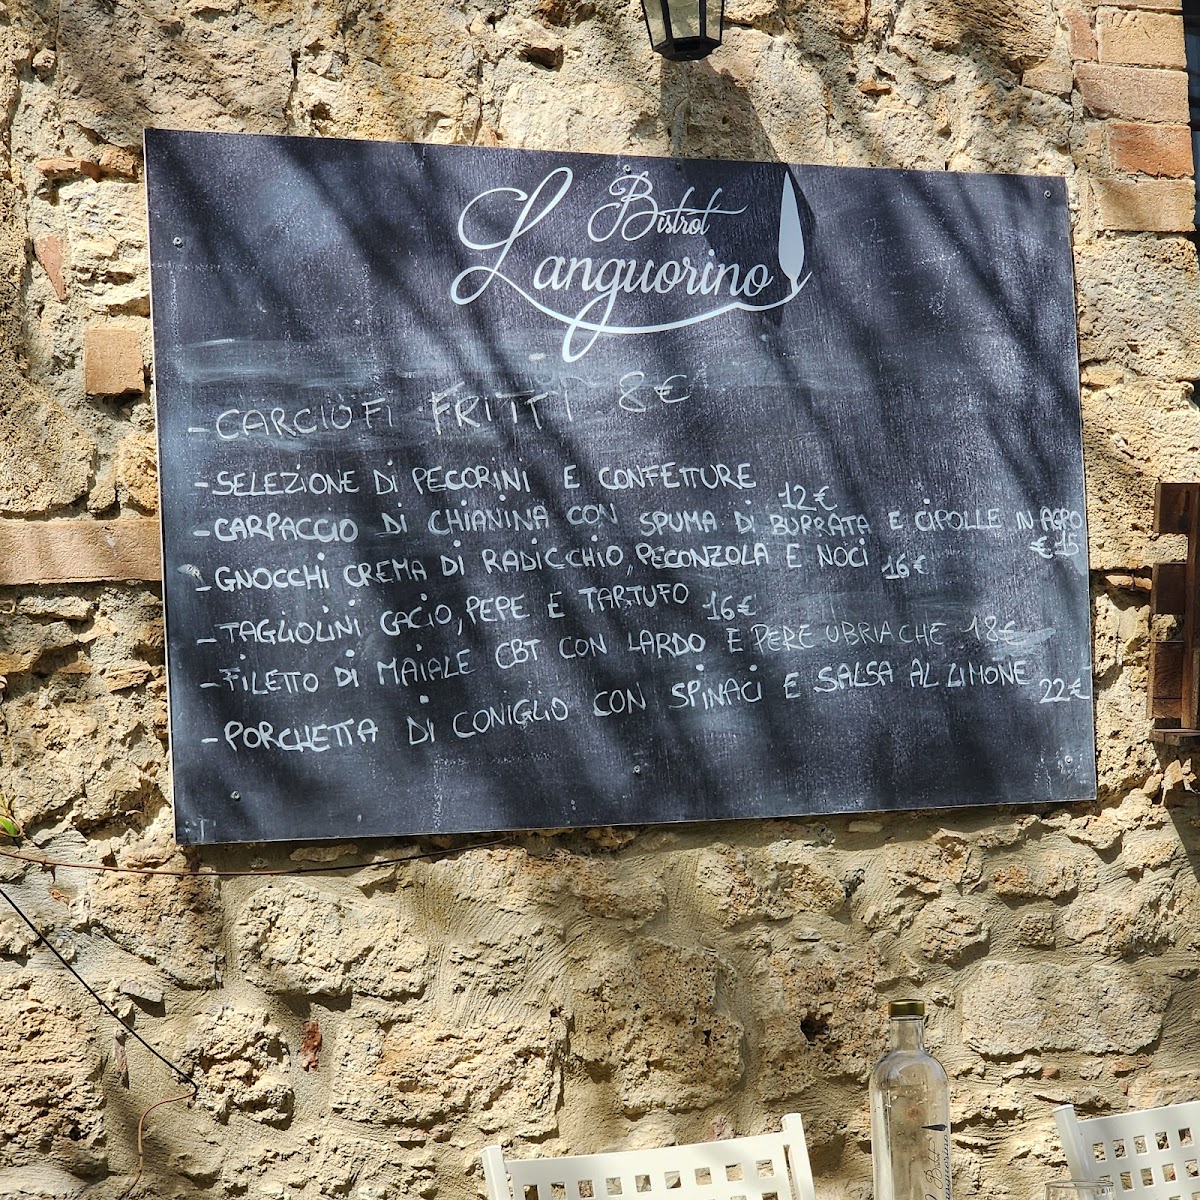 Bistrot
Languorino
- CARCIOFI FRITTI 8€
- SELEZIONE DI PECORINI E CONFETTURE
12€
- CARPACCIO DI CHIANINA CON SPUMA DI BURRATA E CIPOLLE IN AGRO
€15
- GNOCCHI CREMA DI RADICCHIO, PECONZOLA E NOCI 16€
- TAGLIOLINI CACIO, PEPE E TARTUFO 16€
- FILETTO DI MAIALE CBT CON LARDO E PERE UBRIACHE 18€
- PORCHETTA DI CONIGLIO CON SPINACI E SALSA AL LIMONE 22€
Bistrot
Languorino